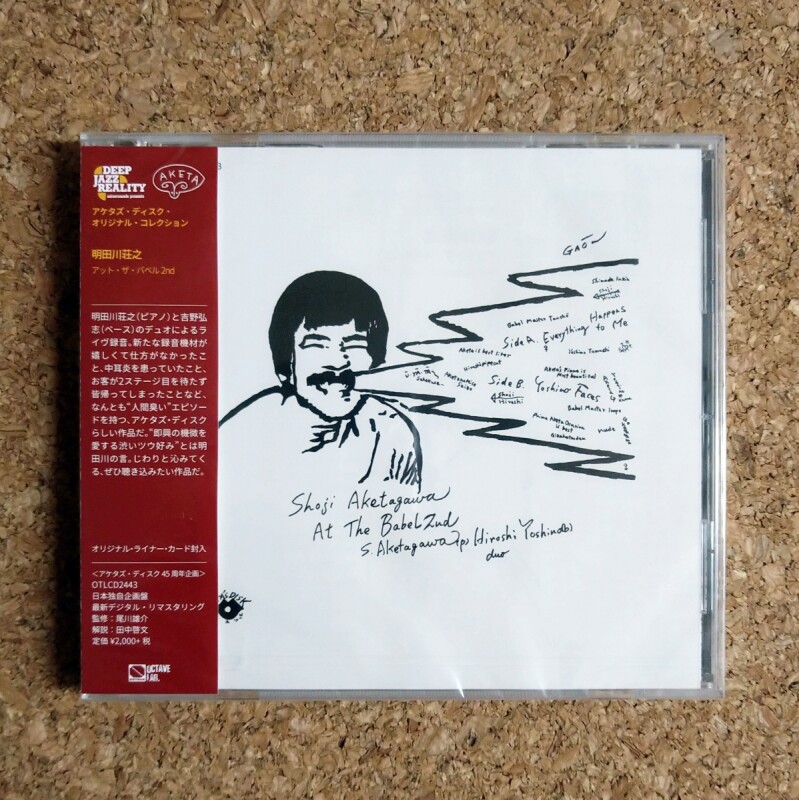 DEEP
JAZZ
REALITY
AKETA
アケタズ・ディスク・
オリジナル・コレクション
明田川荘之
アット・ザ・バベル 2nd
明田川荘之(ピアノ)と吉野弘
志(ベース)のデュオによるラ
イヴ録音。新たな録音機材が
嬉しくて仕方がなかったこ
と、中耳炎を患っていたこと、
お客が2ステージ目を待たず
皆帰ってしまったことなど、
なんとも“人間臭い”エピソー
ドを持つ、アケタズ・ディスク
らしい作品だ。“即興の機微を
愛する渋いツウ好み”とは明
田川の言。じわりと沁みてく
る、ぜひ聴き込みたい作品だ。
オリジナル・ライナー・カード封入
<アケタズ・ディスク 45 周年企画>
OTLCD2443
日本独自企画盤
最新デジタル・リマスタリング
監修：尾川雄介
解説：田中啓文
定価 ¥2,000+ 税
OCTAVE
LAB.
GAŌ
Babel Master
Side A. Everything Happens to Me
Aketa is best
Side B. Yoshino Faces
Aketa's Piano is
Most beautiful
Babel Master
is best
Shoji Aketagawa
At The Babel 2nd
S. Aketagawa (p) Hiroshi Yoshino (b)
duo